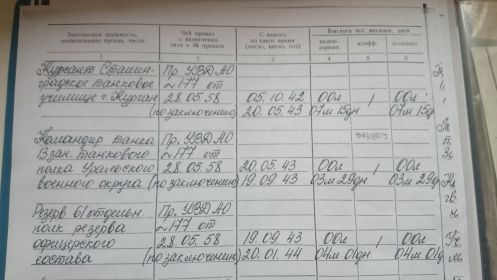 Занимаемая должность, наименование органа, части
Чей приказ о назначении, дата и № приказа
С какого, по какое время (число, месяц, год)
Выслуга лет, месяцев, дней
кален-дарных
коэфф.
льготных
1 2 3 4 5 6
Курсант Сталин- Пр. УВД АО
градское танковое ~177 от
училище г. Курган 28.05.58 05.10.42 00л 1 00л
(по заключению) 20.05.43 07м 15дн 07м 15дн
Командир танка Пр. УВД АО
13 зап. танкового ~177 от
полка Уральского 28.05.58 20.05.43 00л 1 00л
военного округа (по заключению) 19.09.43 03м 29дн 03м 29дн
Резерв 61 отдельн. Пр. УВД АО
полк резерва ~177 от
офицерского 28.05.58 19.09.43 00л 1 00л
состава (по заключению) 20.01.44 04м 01дн 04м 01д